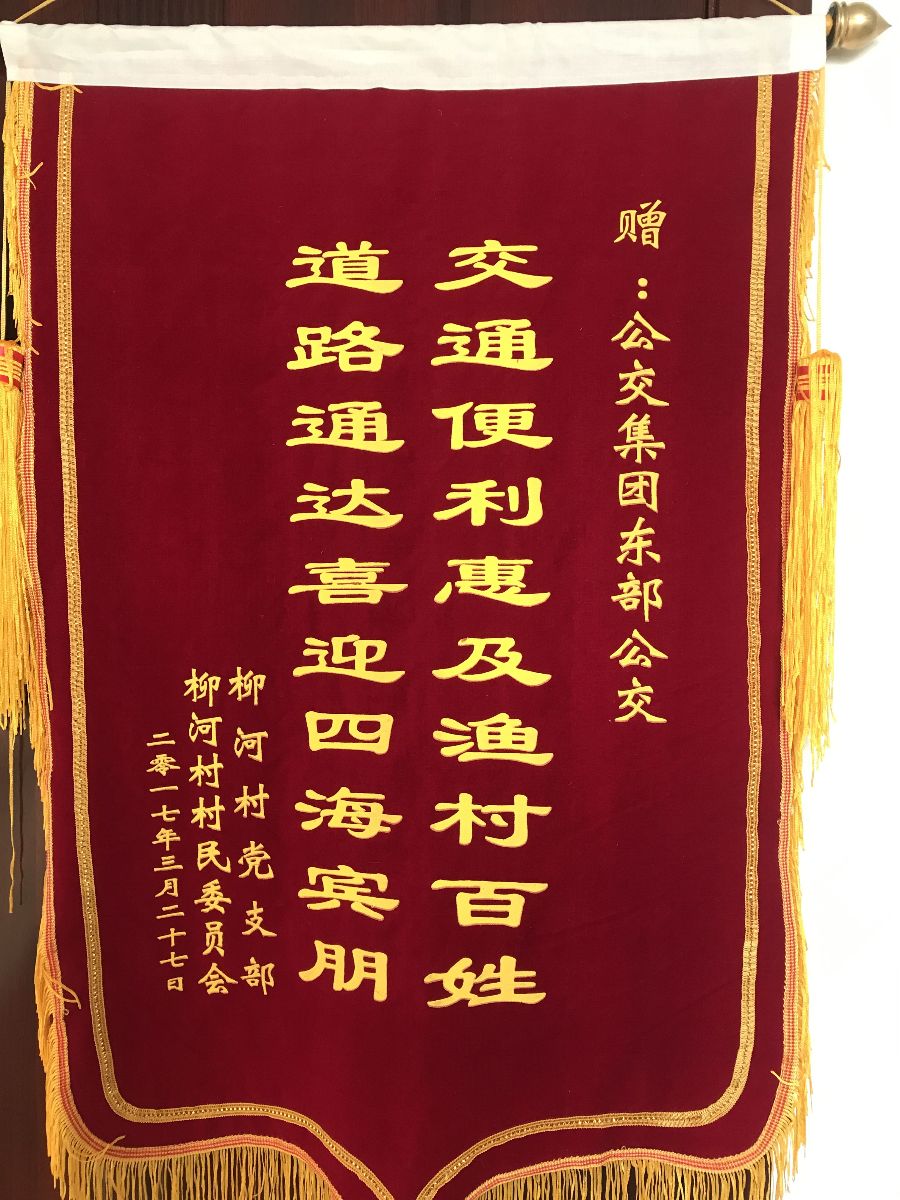 赠：公交集团东部公交
交通便利惠及渔村百姓
道路通达喜迎四海宾朋
柳河村党支部
柳河村村民委员会
二零一七年三月二十七日